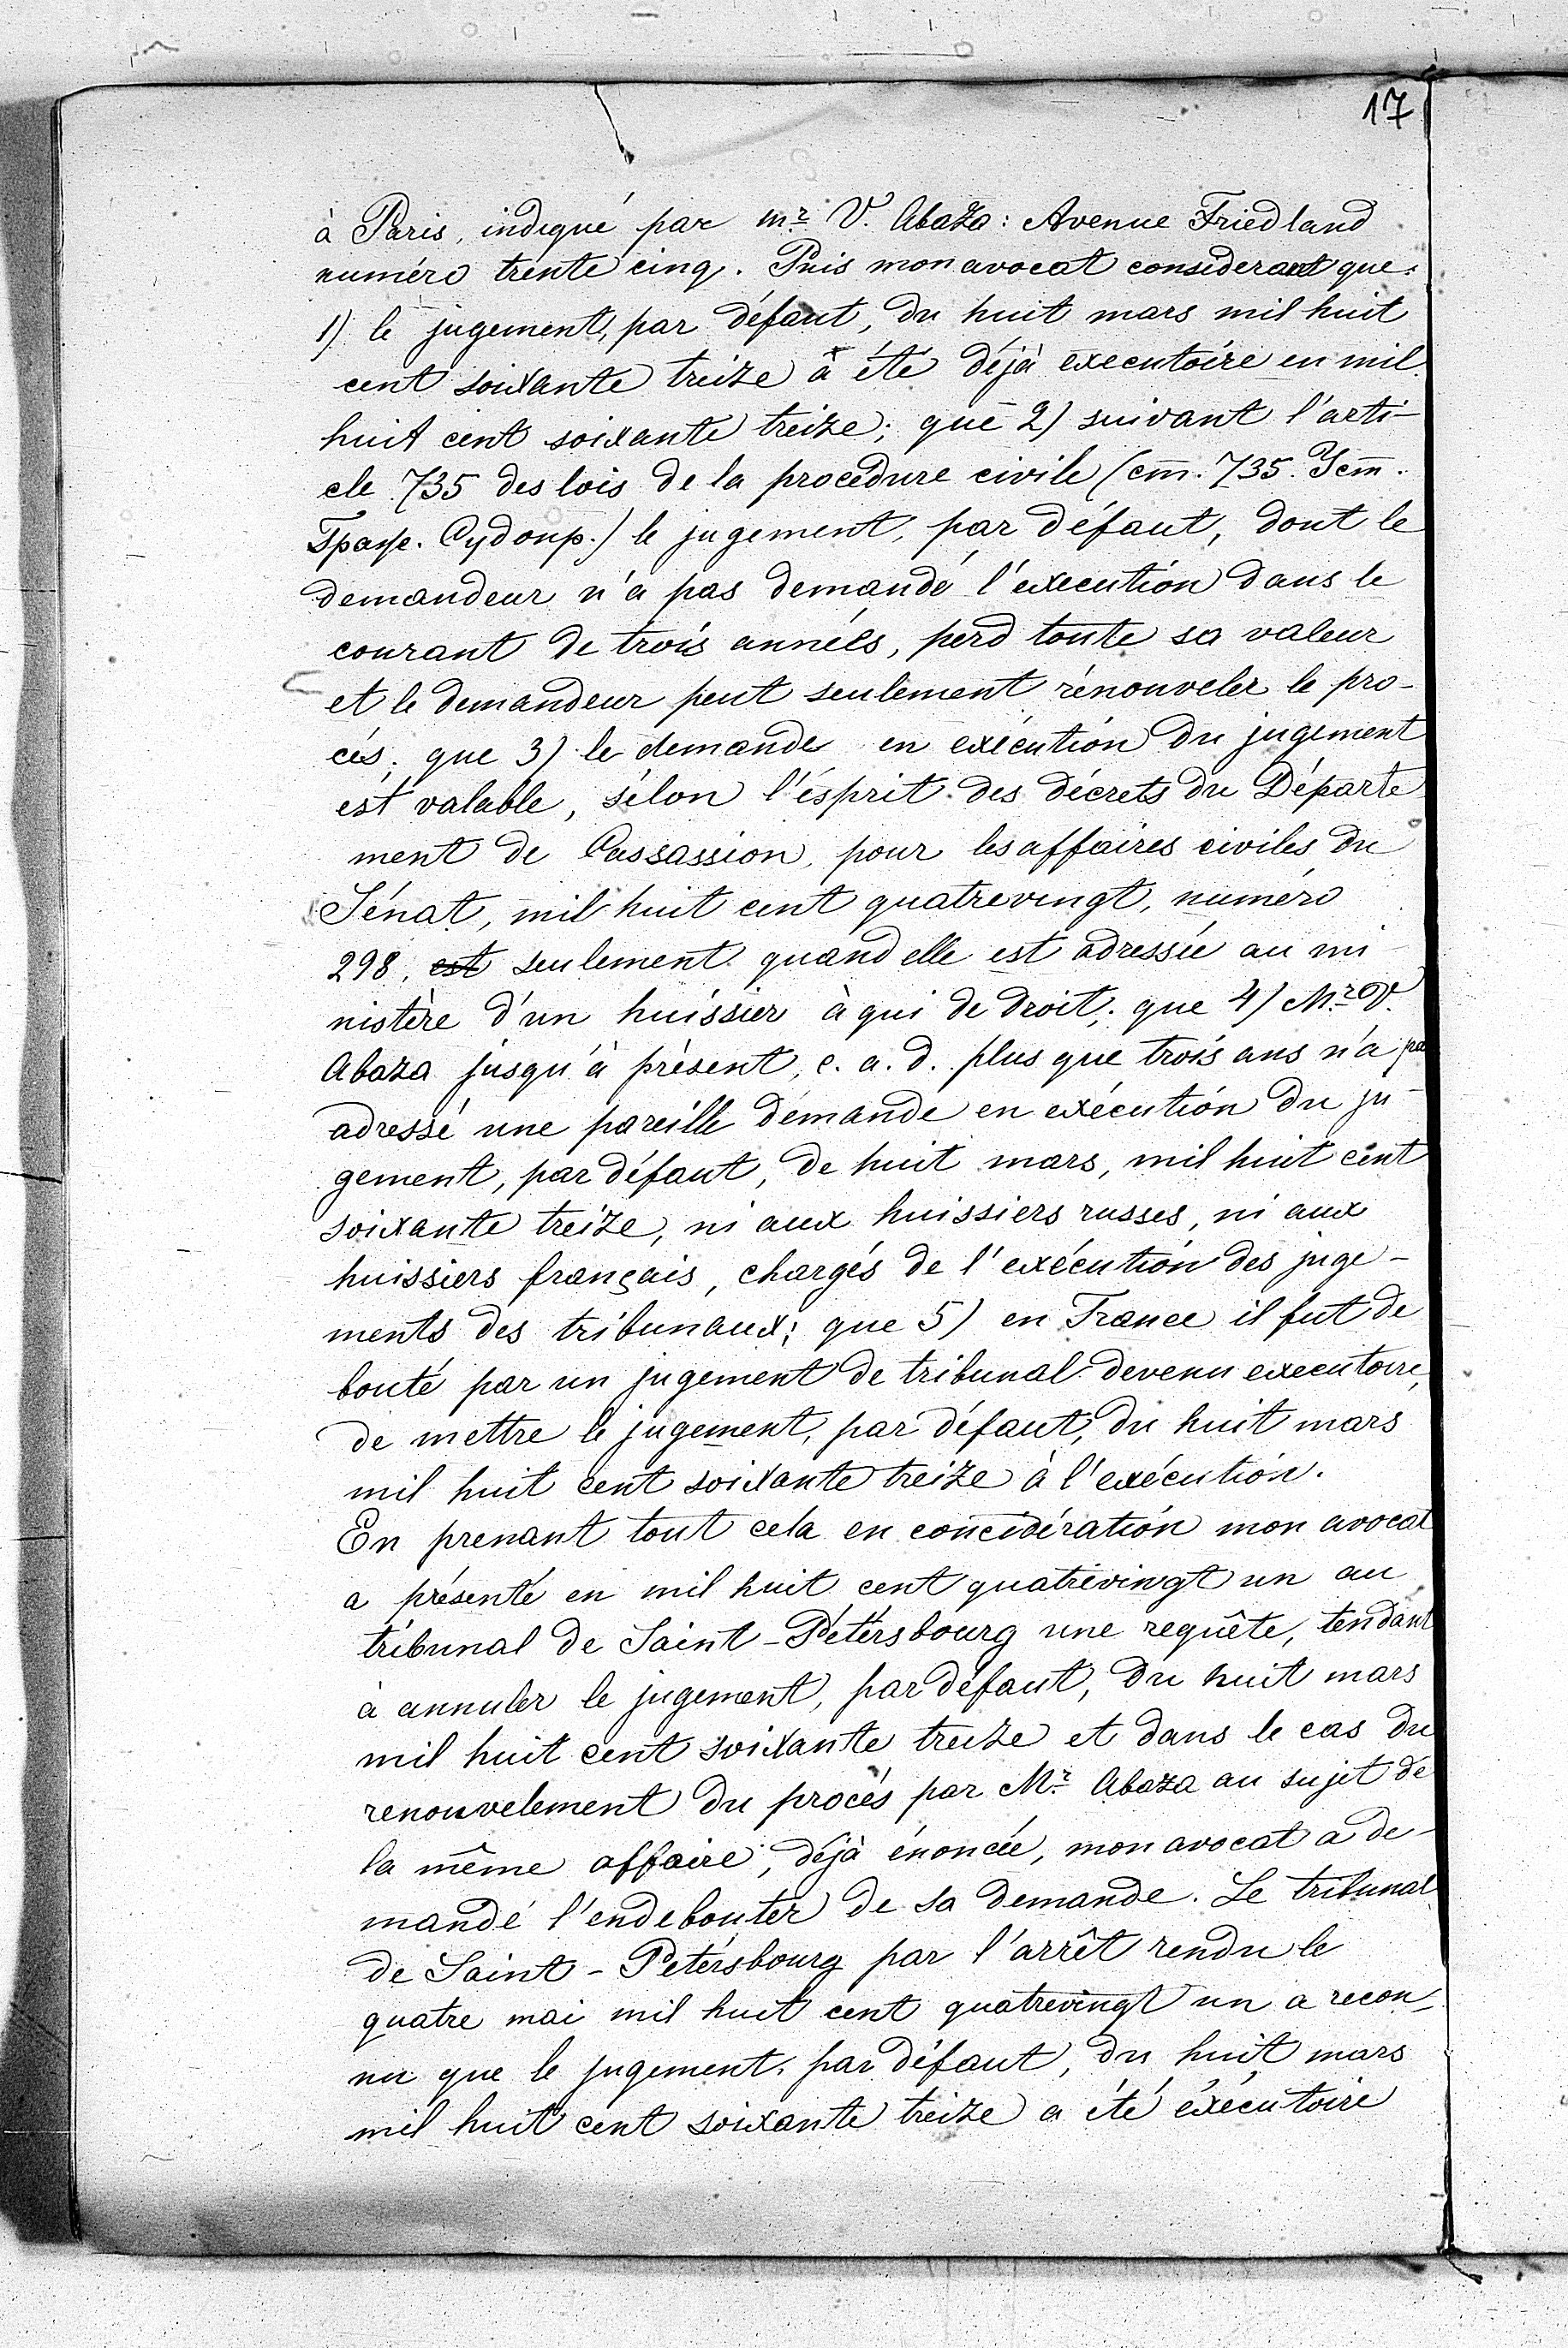 17
à Paris, indiqué par mr. V. Abaza: Avenue Friedland
numéro trente cinq. Puis mon avocat considerant que:
1) le jugement, par défaut, du huit mars mil huit
cent soixante treize a été déjà executoire en mil
huit cent soixante treize; que 2) suivant l'arti-
cle 735 des lois de la procédure civile (cm. 735. Уcm.
Граж. Судопр.) le jugement, par défaut, dont le
demandeur n'a pas demandé l'execution dans le
courant de trois années, perd toute sa valeur
et le demandeur peut seulement rénouveler le pro-
cés; que 3) le demande en exécution du jugement
est valable, sélon l'ésprit des décrets du Départe
ment de Cassassion, pour les affaires civiles du
Sénat, mil huit cent quatrevingt, numéro
298, est seulement quand elle est adressée au mi
nistère d'un huissier à qui de droit; que 4) Mr. V.
Abaza jusqu'à présent, c. a. d. plus que trois ans n'a pa
adressé une pareille demande en exécution du ju-
gement, par défaut, de huit mars, mil huit cent
soixante treize, ni aux huissiers russes, ni aux
huissiers français, chargés de l'exécution des juge-
ments des tribunaux; que 5) en France il fut de
bouté par un jugement de tribunal devenu executoire,
de mettre le jugement, par défaut, du huit mars
mil huit cent soixante treize à l'exécution.
En prenant tout cela en concidération mon avocat
a présenté en mil huit cent quatrevingt un au
tribunal de Saint-Pétérsbourg une requête, tendant
à annuler le jugement, par défaut, du huit mars
mil huit cent soixante treize et dans le cas du
renouvelement du procés par Mr. Abaza au sujet de
la même affaire, déjà énoncée, mon avocat a de-
mandé l'endebouter de sa demande. Le tribunal
de Saint-Petérsbourg par l'arrêt rendu le
quatre mai mil huit cent quatrevingt un a recon-
nu que le jugement, par défaut, du huit mars
mil huit cent soixante treize a été éxécutoire